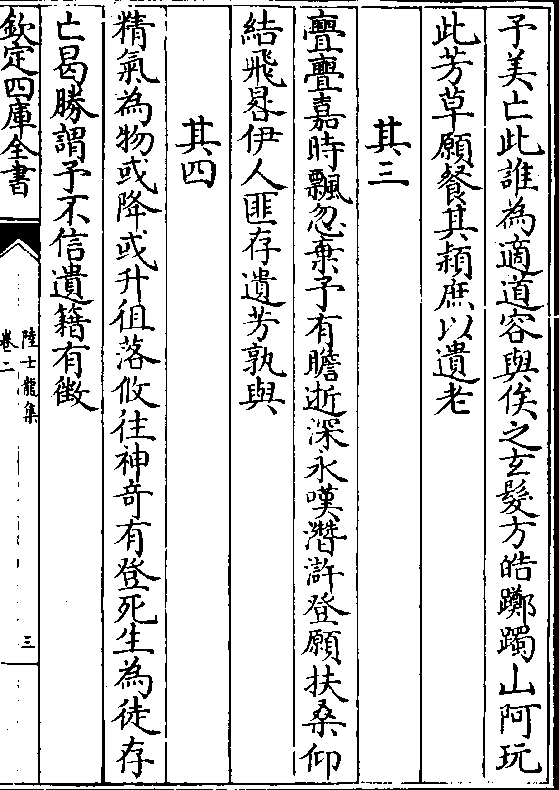 予美亡此誰為適道容與俟之玄髮方皓躑躅山阿玩
此芳草願餐其穎庶以遺老
其三
亹亹嘉時飄忽棄予有瞻逝深永嘆潛滸登願扶桑仰
結飛晷伊人匪存遺芳孰與
其四
精氣為物或降或升徂落攸往神奇有登死生為徒存
亡曷勝謂予不信遺籍有徵
欽定四庫全書
陸士龍集
卷二
三